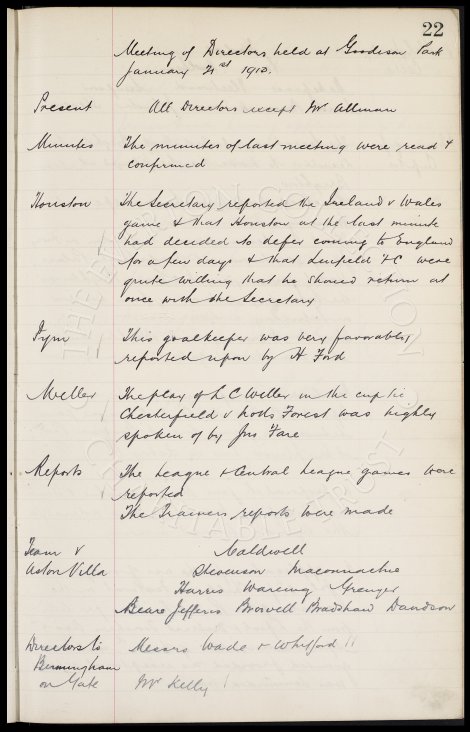 22
Meeting of Directors held at Goodison Park
January 21st 1913.
Present All Directors except Mr Allman
Minutes The minutes of last meeting were read &
confirmed
Houston The Secretary reported the Ireland v Wales
game & that Houston at the last minute
had decided to defer coming to England
for a few days & that Linfield FC were
quite willing that he should return at
once with the Secretary
Fym This goalkeeper was very favorably
reported upon by H Ford
Weller The play of L C Weller in the cup tie
Chesterfield v Notts Forest was highly
spoken of by Jas Fare
Reports The League & Central League games were
reported
The Trainers reports were made
Team v Caldwell
Aston Villa Stevenson Maconnachie
Harris Wareing Grenyer
Beare Jefferis Browell Bradshaw Davidson
Directors to Messrs Wade & Whitford
Birmingham
on Gate Mr Kelly